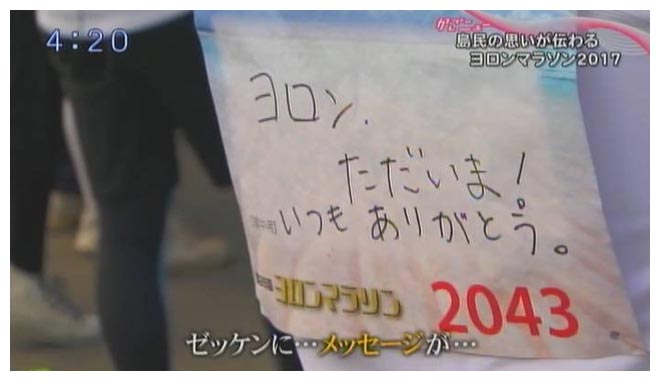 4:20
かごニュー
島民の思いが伝わる
ヨロンマラソン2017
ヨロン、
ただいま!
いつもありがとう。
ヨロンマラソン
2043
ゼッケンに…メッセージが…